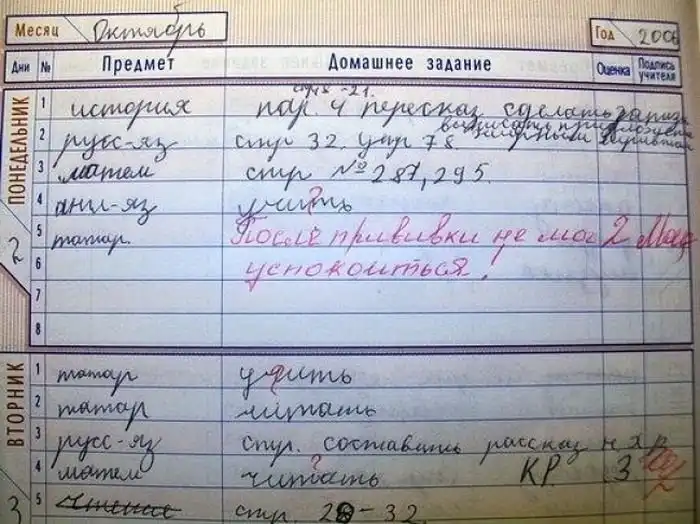 Месяц Октябрь Год 2006
Дни № Предмет Домашнее задание Оценка Подпись учителя
ПОНЕДЕЛЬНИК 2
стр -21.
1 история пар. 4 пересказ сделать
2 русс-яз стр 32. упр 78
3 матем стр № 287, 295.
4 анг-яз учить
5 татар. После прививки не мог 2
6 успокоиться!
7
8
ВТОРНИК 3
1 татар учить
2 татар читать
3 русс-яз стр. составить рассказ
4 матем читать ? КР. 3
5 чтение стр. 28-32.